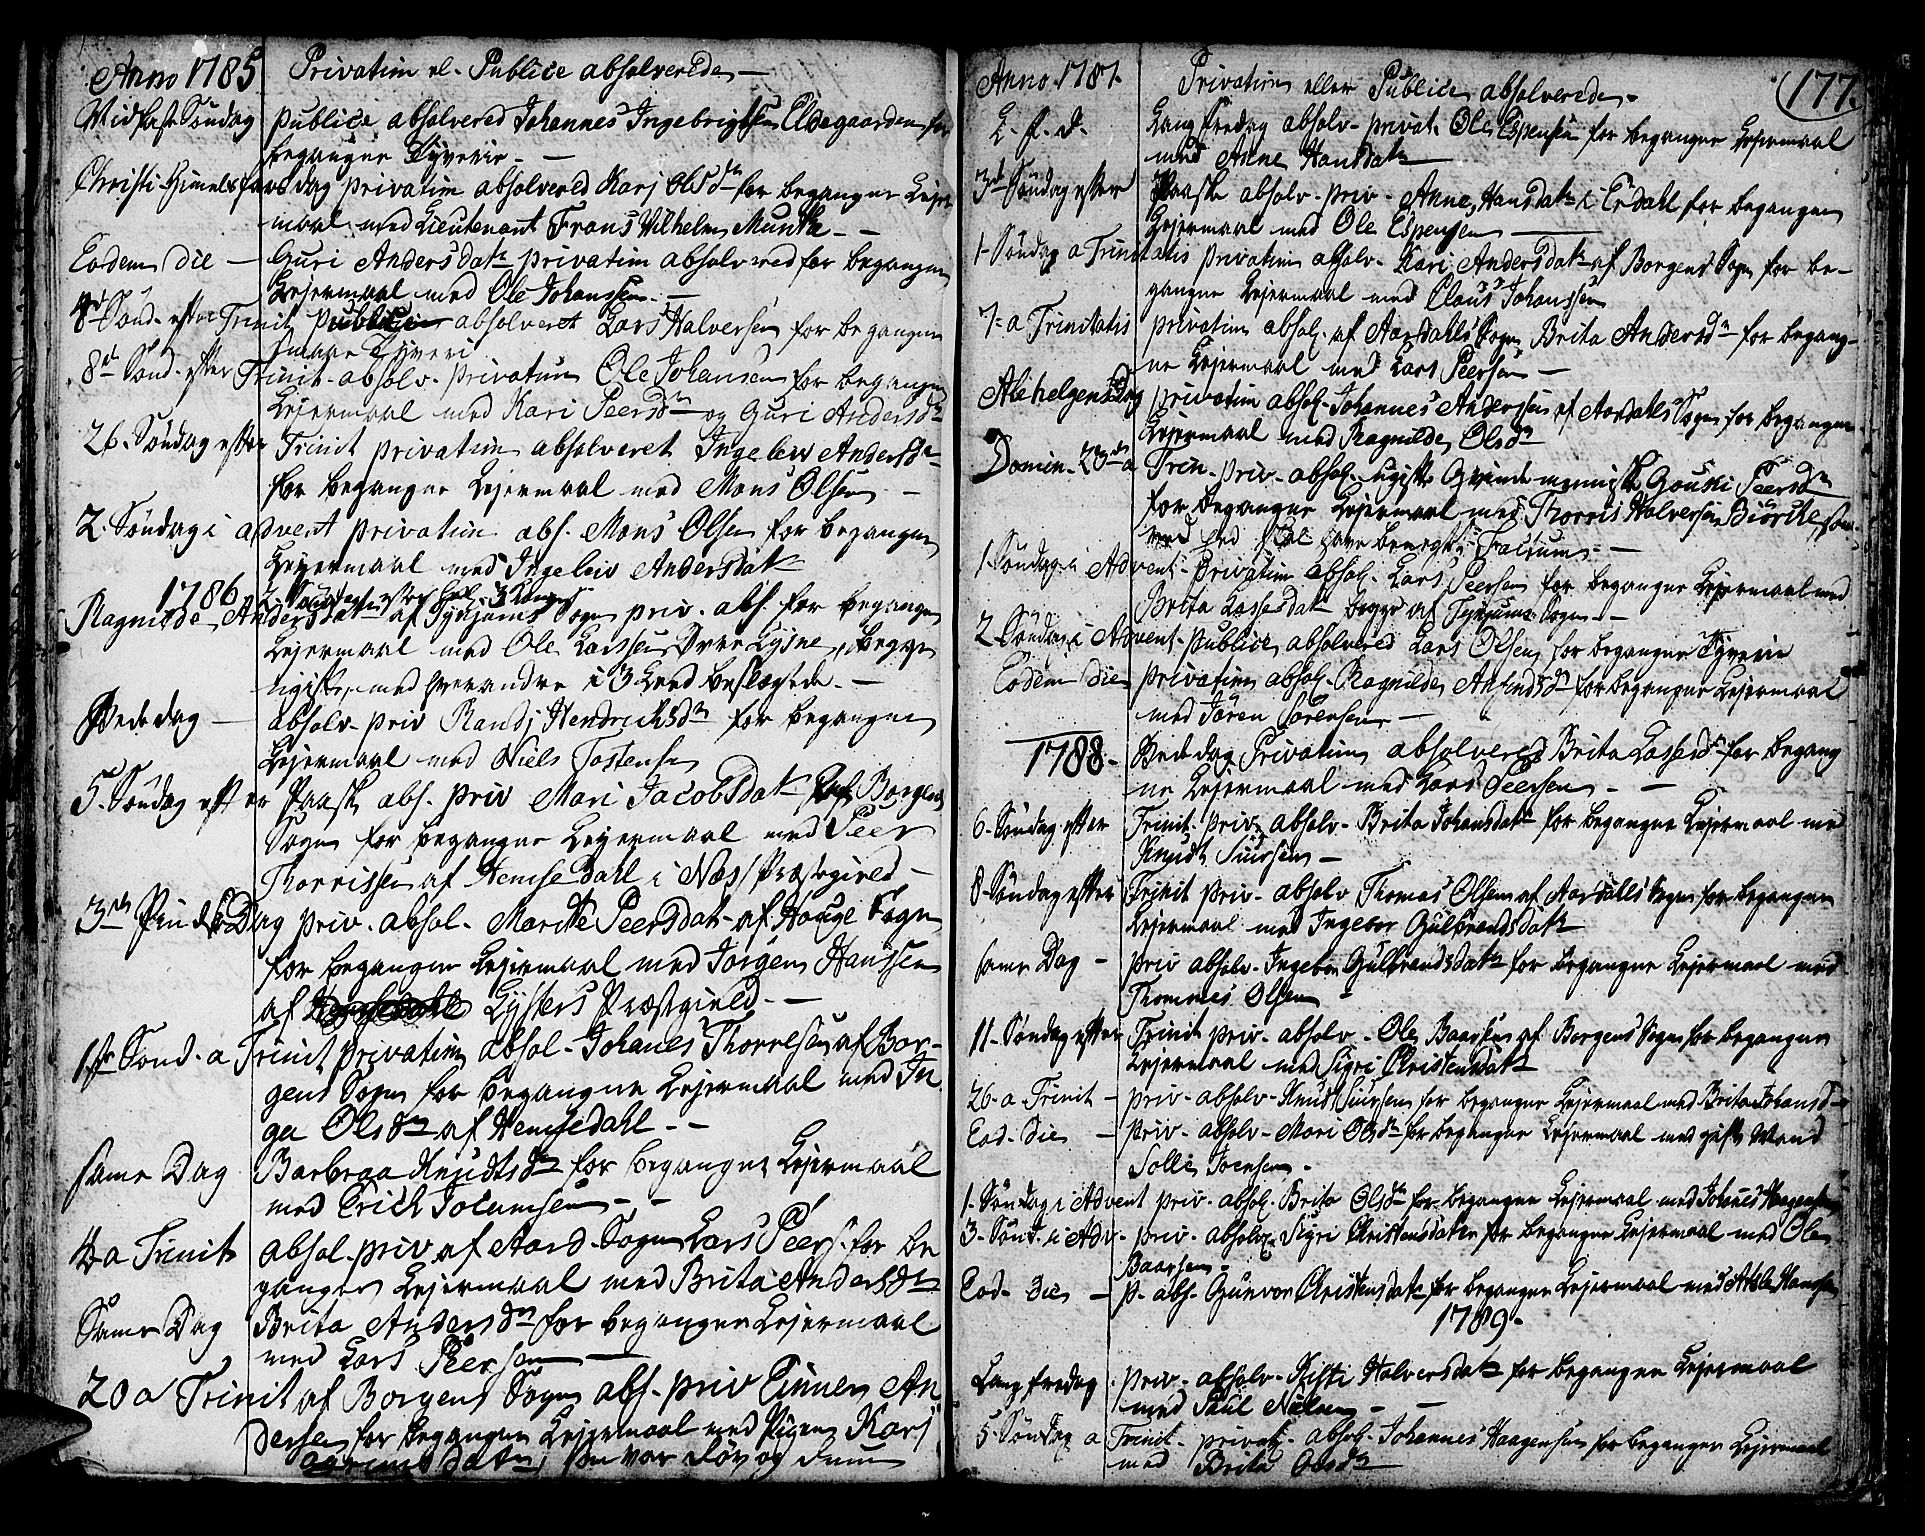 Anno 1785 Privatim el. Publice absolverede –
Midfaste Søndag publice absolvered Johannes Ingebrigtsen Eldegaarden for
begangne Tyverie. –
Christi Himelsfarts dag privatim absolvered Karj Olsdr for begangne Lejer
maal med Lieutenant Frans Wilhelm Munthe. –
Eodem die – Guri Andersdatr privatim absolvered for begangen
Lejermaal med Ole Johanssen. –
8d Sönd. efter Trinit absolveret Lars Halversen for begangen
smaae Tyveri
8d Sönd. efter Trinit. absolv. privatim Ole Johansen for begangen
Lejermaal med Kari Peersdr og Guri Andersdr
26. Søndag efter Trinit privatim absolveret Ingeleiv Andersdr
for begangne Lejermaal med Mons Olsen –
2. Søndag i advent privatim abs. Mons Olsen for begangen
Lejermaal med Ingeleiv Andersdatr
1786 2. Søndag efter Hel. 3 Kongers
Ragnilde Andersdatr af Tydjums Sogn priv. abs. for begangen
Lejermaal med Ole Larssen Øvre Lysne, begge
ugifte, med hverandre i 3 Leed beslegtede. –
Bededag – absolv. priv Randj Hendrichsdr for begangen
Lejermaal med Niels Tostensen
5. Søndag efter Paask abs. priv Mari Jacobsdatr af Borgens
Sogn for begangne Lejermaal med Peer
Thorrissen af Hemsedahl i Næs Præstegield –
3die PindseDag priv. absol. Marite Peersdatr af Hauge Sogn
for begangen Lejermaal med Jørgen Hanssen
af Lysters Præstgield. –
1ste Sönd. a Trinit privatim absol. Johanes Thorresen af Bor-
gens Sogn for begangne Lejermaal med In
ga Olsdr af Hemsedahl. –
same Dag Barbraa Knudtsdr for begangne Lejermaal
med Erich Jocumsen –
4 a Trinit absol. priv af Aard. Sogn Lars Peers. for be
gangen Lejermaal med Brita Andersdr
Same Dag Brita Andersdr for begangen Lejermaal
med Lars Peersen –
20 a Trinit af Borgens Sogn abs. priv Einner An
dersen for begangen Lejermaal med Pigen Karj
datr, som var døv og dum
Anno 1787. Privatim eller Publice absolverede. 177.
L. f. d. Langfredag absolv. privat. Ole Espensen for begangne Lejermaal
med Anne Hansdatr
3d Søndag efter Paaske absolv. priv. Anne Hansdatr i Erdahl for begangen
Lejermaal med Ole Espensen
1. Søndag a Trinitatis privatim absolv. Kari Andersdatr af Borgens Sogn for be-
gangne Lejermaal med Claus Johanssen
7. a Trinitatis privatim absol. af Aardahls Sogn Brita Andersdr for begang-
ne Lejermaal med Lars Peersen –
AllehelgensDag privatim absol. Johannes Andersen af Aardahls Sogn for begangen
Lejermaal med Ragnilde Olsdr
Domin. 23de a Trin. priv. absol. ugifte Qvindemenniske Gouski Peersdr
for begangne Lejermaal med Thorris Halversen Biørche, som
ved Eed skal have benegtet Factum. –
1. Søndag i Advent. Privatim absol. Lars Peersen for begangne Lejermaal med
Brita Lassesdatr begge af Tydjums Sogn. –
2. Søndag i Advent. publice absolvered Lars Olsen for begangne Tyverie
Eodem die privatim absol. Ragnilde Anfindsdr for begangne Lejermaal
med Jören Sörensen –
1788. Bededag Privatim absolvered Brita Lassesdr for begang
ne Lejermaal med Lars Peersen. –
6. Søndag efter Trinit. priv. absolv. Brita Johansdatr for begangne Lejermaal med
Knudt Siursen –
8. Søndag efter Trinit priv. absolv Thomas Olsen af Aardalls Sogn for begangen
Lejermaal med Ingebor Gulbrandsdatr
same Dag – priv absolv. Ingebor Gulbrandsdatr for begangne Lejermaal med
Thommes Olsen –
11. Søndag efter Trinit priv. absolv. Ole Baarsen af Borgens Sogn for begangen
Lejermaal med Sigri Christensdatr
26. a Trinit – priv. absolv. Knud Siursen for begangne Lejermaal med Brita Johansd.
Eod. Die – priv. absolv. Mari Olsdr for begangne Lejermaal med gifte Mand
Solle Joensen.
1. Søndag i Advent priv. absol. Brita Olsdr for begangne Lejermaal med Johanes Haagensen
3. Sönd. i Adv. priv. absolv. Sigri Christensdatr for begangne Lejermaal med Ole
Baarsen.
Eod. Die – p. abs. Gunvor Christensdatr for begangne Lejermaal med Atle Hansen
1789.
Langfredag priv. absolv. Kisti Halversdatr for begangne Lejermaal
med Poul Nielsen. –
5. Søndag a Trinit. privat. absol. Johannes Haagensen for begangen Lejermaal
med Brita Olsdr